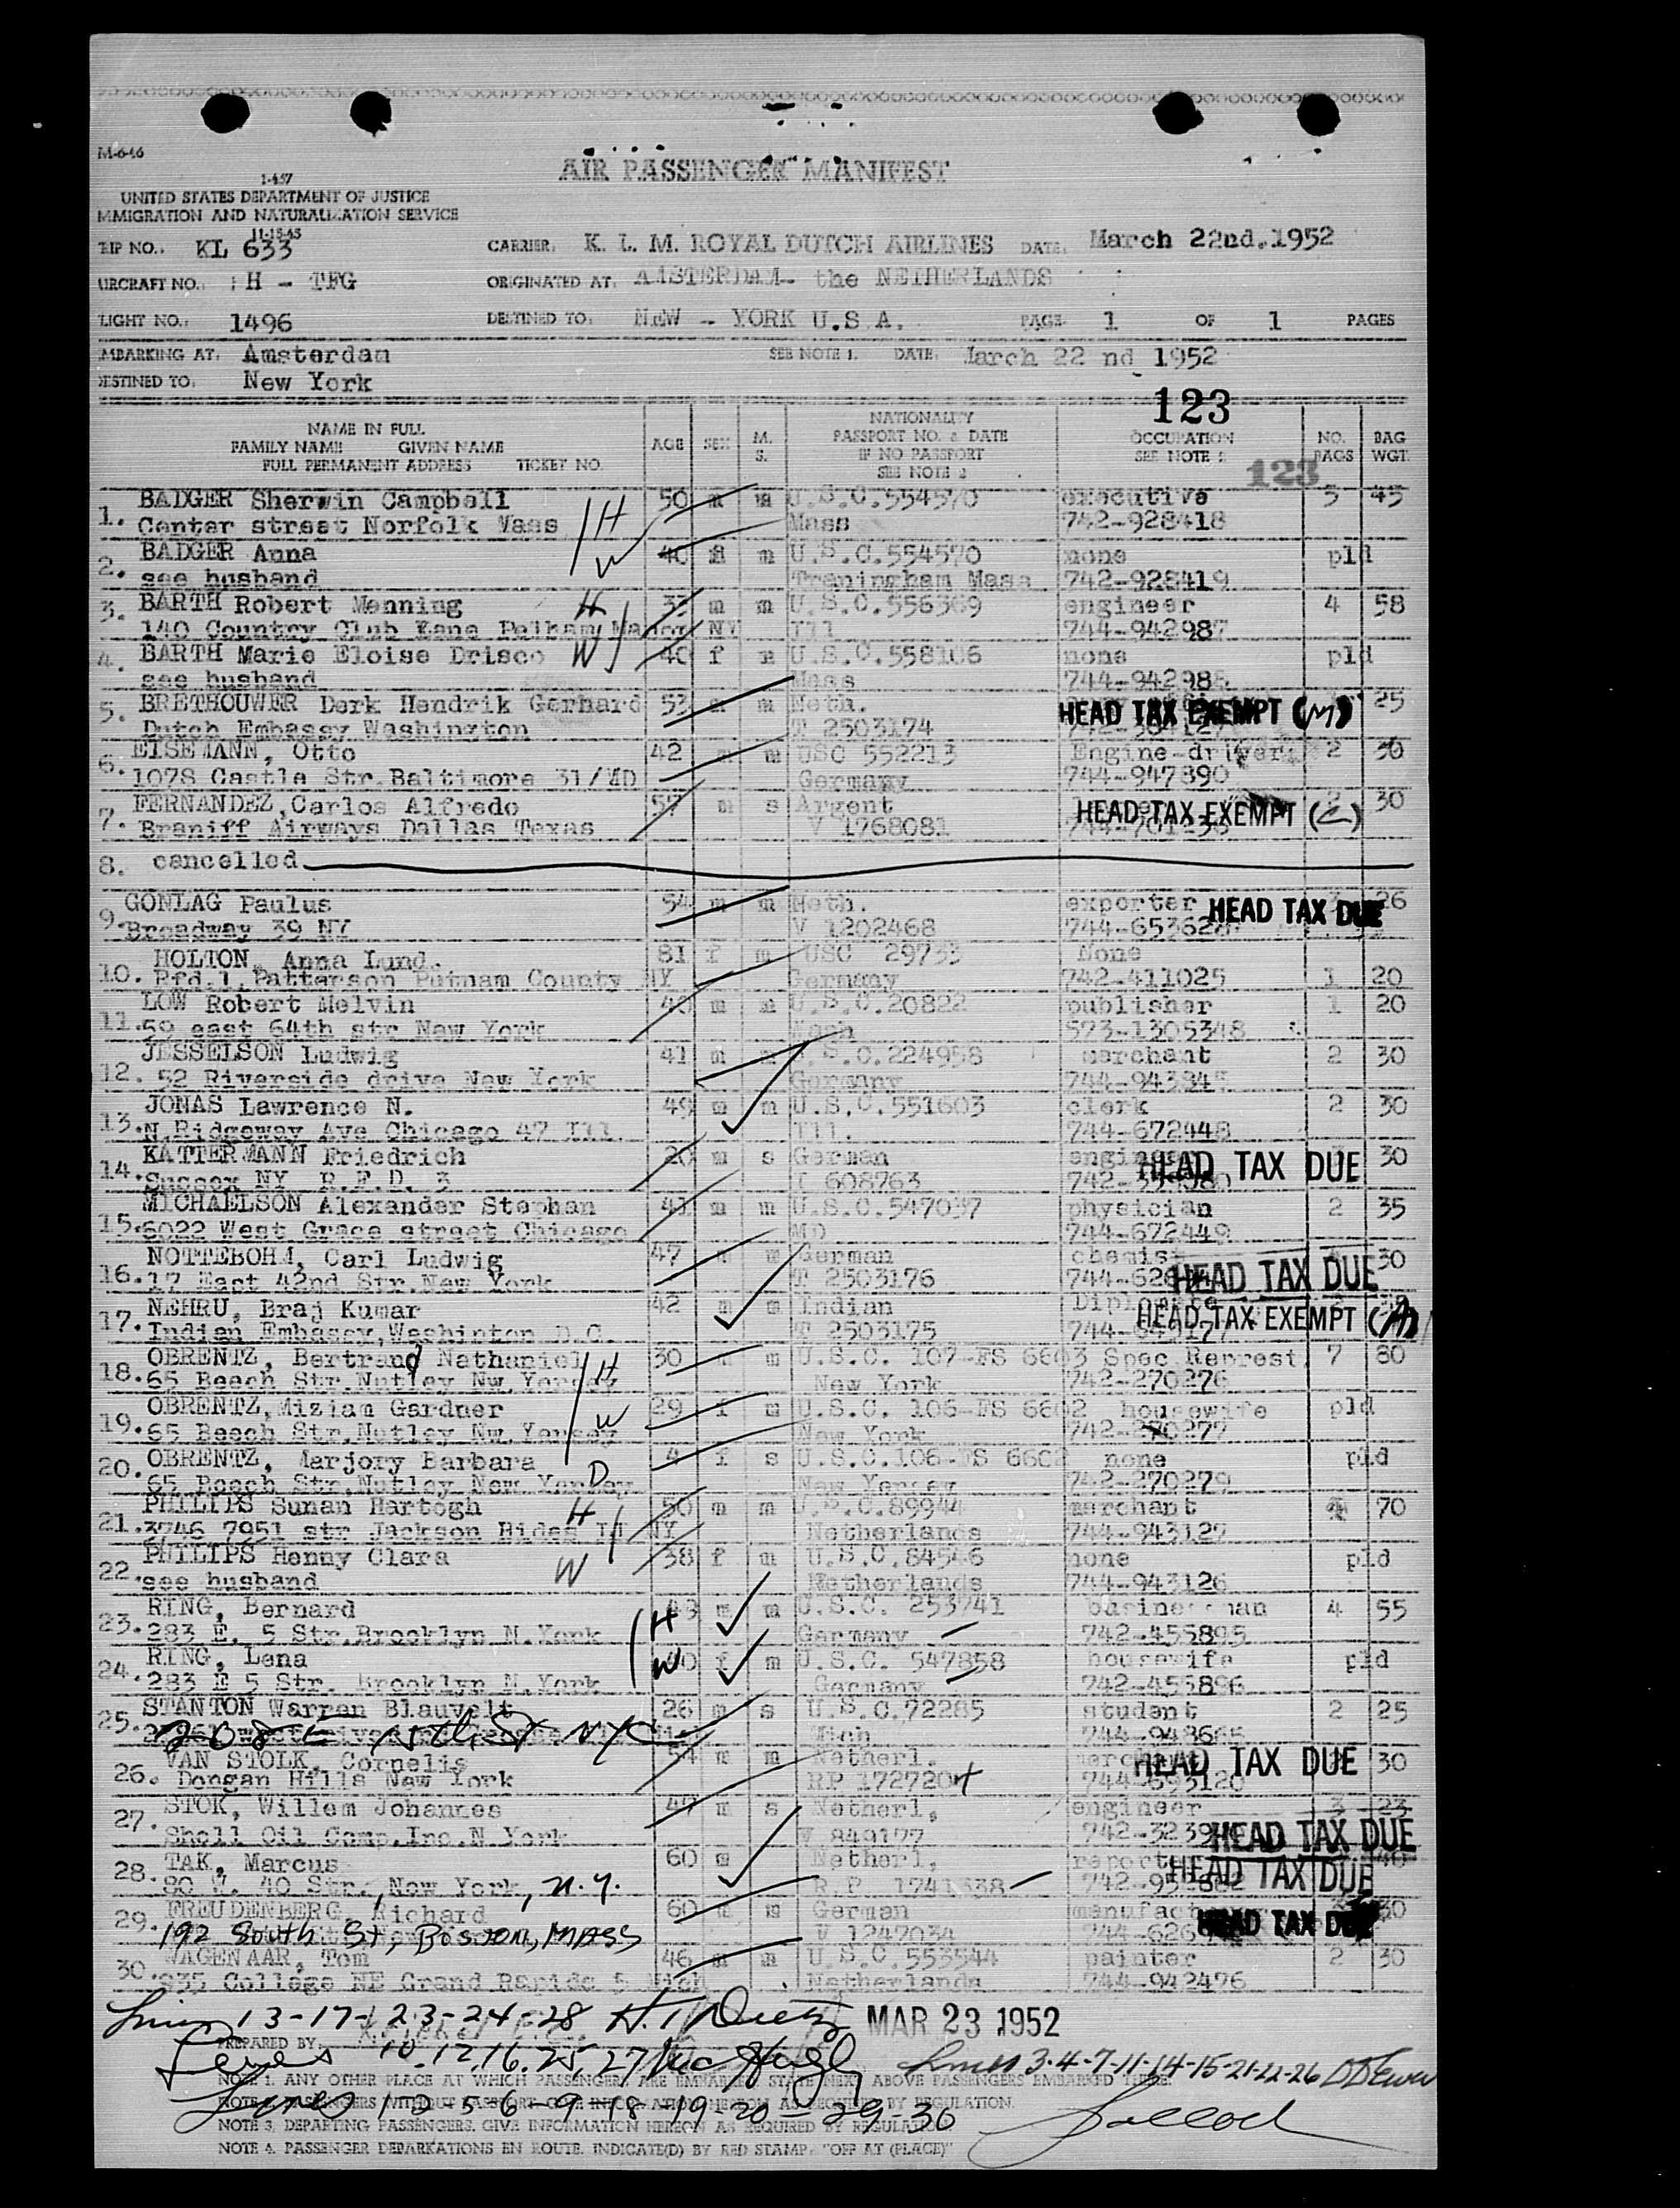 M-646
AIR PASSENGER MANIFEST
1-457
UNITED STATES DEPARTMENT OF JUSTICE
MMIGRATION AND NATURALIZATION SERVICE
11-15-45
RIP NO. KL 633 CARRIER. K. L. M. ROYAL DUTCH AIRLINES DATE. March 22nd.1952
IRCRAFT NO. H - TFG ORIGINATED AT. AMSTERDAM- the NETHERLANDS
LIGHT NO. 1496 DESTINED TO. NEW - YORK U.S.A. PAGE 1 OF 1 PAGES
MBARKING AT. Amsterdam SEE NOTE 1. DATE. March 22 nd 1952
ESTINED TO. New York
123
NAME IN FULL
FAMILY NAME GIVEN NAME
FULL PERMANENT ADDRESS TICKET NO.
AGE SEX M. S.
NATIONALITY
PASSPORT NO. & DATE
IF NO PASSPORT
SEE NOTE 2
OCCUPATION
SEE NOTE 2
NO. BAGS
BAG WGT.
123
1. BADGER Sherwin Campbell H 50 m m U.S.C.554570 executive 5 45
Center street Norfolk Mass Mass 742-928418
2. BADGER Anna W 40 f m U.S.C.554570 none pld
see husband Mass 742-928419
3. BARTH Robert Menning H 33 m m U.S.C.556369 engineer 4 58
140 Country Club Lane Pelham Manor NY Ill 744-942987
4. BARTH Marie Eloise Drisco W 40 f m U.S.C.558106 none pld
see husband Mass 744-942988
5. BRETHOUWER Derk Hendrik Gerhard 53 m m Neth. HEAD TAX EXEMPT (M) 25
Dutch Embassy Washington T 2503174
6. EISEMANN, Otto 42 m m USC 552213 Engine-driver 2 30
1078 Castle Str.Baltimore 31/MD Germany 744-947890
7. FERNANDEZ,Carlos Alfredo 57 m s Argent HEAD TAX EXEMPT (C) 30
Braniff Airways Dallas Texas V 1768081
8. cancelled
9. GONLAG Paulus 54 m m Neth. exporter HEAD TAX DUE 26
Broadway 39 NY V 1202468 744-653628
10. HOLTON, Anna Lund. 81 f m USC 29733 None
Rfd.1.Patterson Putnam County NY Germany 742-411025 1 20
11. LOW Robert Melvin 40 m m U.S.C.20822 publisher 1 20
59 east 64th str New York Wash 593-1305348
12. JESSELSON Ludwig 41 m m U.S.C.224958 merchant 2 30
52 Riverside drive New York Germany 744-943845
13. JONAS Lawrence N. 49 m m U.S.C.551603 clerk 2 30
N.Ridgeway Ave Chicago 47 Ill. Ill. 744-672448
14. KATTERMANN Friedrich 20 m s German engineer HEAD TAX DUE 30
Sussex NY R.F.D. 3 T 608763
15. MICHAELSON Alexander Stephan 41 m m U.S.C.547037 physician 2 35
6022 West Grace street Chicago MD 744-672449
16. NOTTEBOHM, Carl Ludwig 47 m m German chemist HEAD TAX DUE 30
17 East 42nd Str.New York T 2503176
17. NEHRU, Braj Kumar 42 m m Indian HEAD TAX EXEMPT (A)
Indian Embassy,Washinton D.C. T 2503175
18. OBRENTZ, Bertrand Nathaniel H 30 m m U.S.C. 107-FS 6603 Spec Represt. 7 80
65 Beech Str.Nutley Nw.Yersey New York 742-270276
19. OBRENTZ,Miziam Gardner W 29 f m U.S.C. 106-FS 6602 housewife pld
65 Beech Str.Nutley Nw.Yersey New York 742-270277
20. OBRENTZ, Marjory Barbara D 4 f s U.S.C.106-FS 6602 none pld
65 Beech Str.Nutley New Yersey New Yersey 742-270279
21. PHILIPS Sunan Hartogh H 50 m m U.S.C.89944 merchant 4 70
3746 7951 str Jackson Hides LI NY Netherlands 744-943127
22. PHILIPS Henny Clara W 38 f m U.S.C.84546 none pld
see husband Netherlands 744-943126
23. RING, Bernard H 43 m m U.S.C. 253741 businessman 4 55
283 E. 5 Str.Brooklyn N.York Germany 742-455895
24. RING, Lena W 40 f m U.S.C. 547858 housewife pld
283 E 5 Str. Brooklyn N.York Germany 742-455896
25. STANTON Warren Blauvelt 26 m s U.S.C.72285 student 2 25
208 E 15th St NYC Mich 744-948665
26. VAN STOLK, Cornelis 54 m m Netherl. HEAD TAX DUE 30
Dongan Hills New York RP 1727204 744-693120
27. STOK, Willem Johannes 47 m s Netherl, engineer 3 23
Shell Oil Comp.Inc.N York V 849177 HEAD TAX DUE
28. TAK, Marcus 60 m Netherl, HEAD TAX DUE 40
80 W. 40 Str., New York, N.Y. R.P. 1741638
29. FREUDENBERG, Richard 60 m m German HEAD TAX DUE 30
192 South St, Boston, MASS V 1247034
30. WAGENAAR, Tom 46 m m U.S.C.553544 painter 2 30
935 College NE Grand Rapids 5 Mich Netherlands 744-942476
Lines 13-17-23-24-28 MAR 23 1952
PREPARED BY
Lines 10.12.16.25.27 Lines 3-4-7-11-14-15-21-22-26
NOTE 1. ANY OTHER PLACE AT WHICH PASSENGERS ARE EMBARKED STATE NEXT ABOVE PASSENGERS EMBARKED THERE.
Lines 1-2-5-6-9-18-19-20-29-30
NOTE 3. DEPARTING PASSENGERS. GIVE INFORMATION HEREON AS REQUIRED BY REGULATION.
NOTE 4. PASSENGER DEPARKATIONS EN ROUTE. INDICATE(D) BY RED STAMP. "OFF AT (PLACE)"